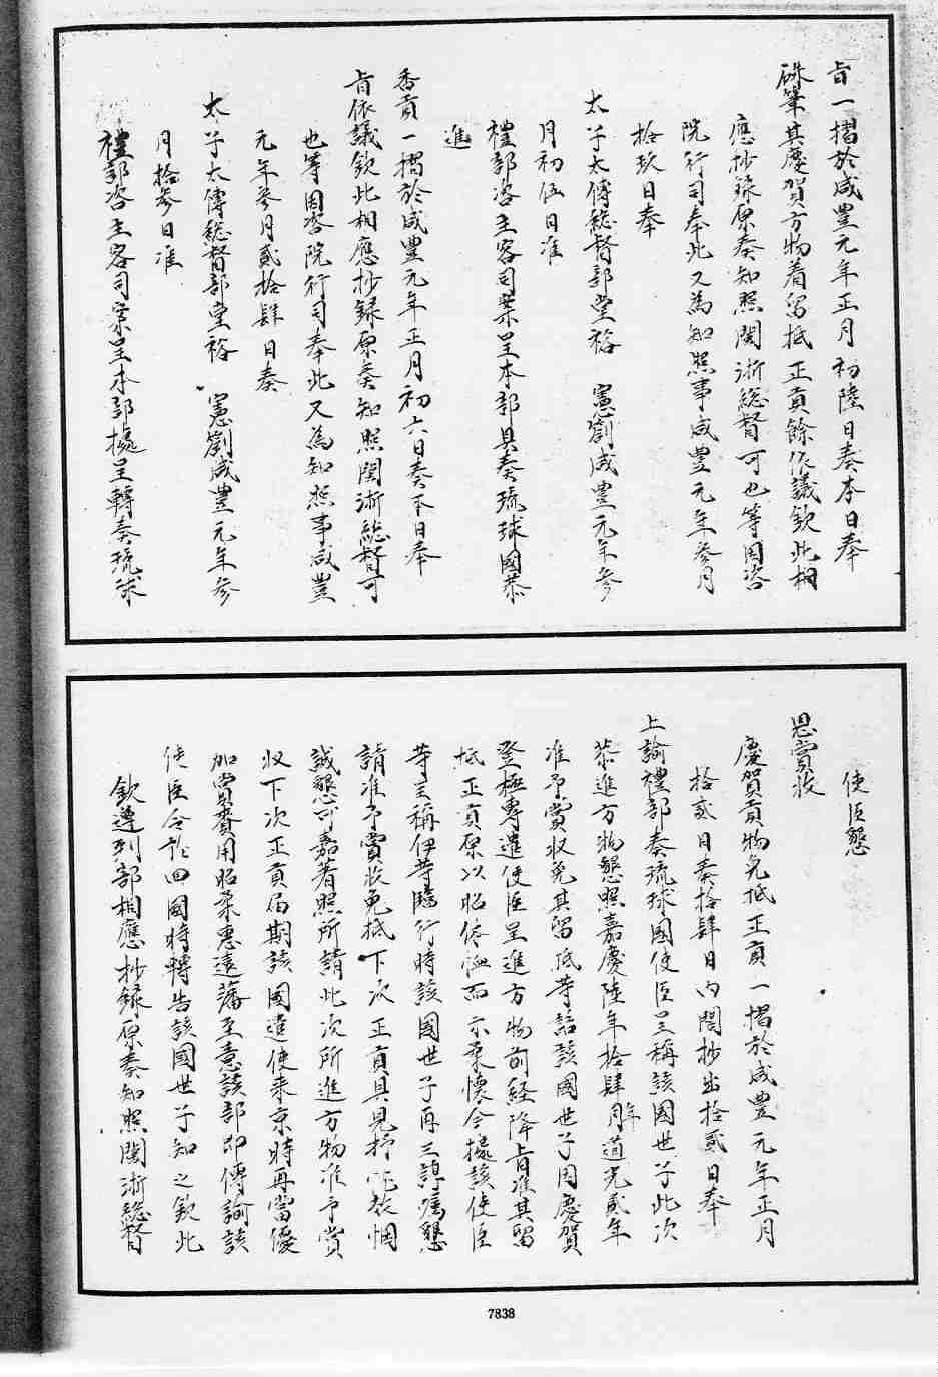 旨一摺於咸豐元年正月初陸日奏本日奉
硃筆其慶賀方物着留抵正貢餘依議欽此相
應抄錄原奏知照閩浙總督可也等因咨
院行司奉此又為知照事咸豐元年參月
拾玖日奉
太子太傅總督部堂裕 憲劄咸豐元年參
月初伍日准
禮部咨主客司案呈本部具奏琉球國恭
進
香貢一摺於咸豐元年正月初六日奏本日奉
旨依議欽此相應抄錄原奏知照閩浙總督可
也等因咨院行司奉此又為知照事咸豐
元年參月貳拾肆日奏
太子太傅總督部堂裕 憲劄咸豐元年參
月拾參日准
禮部咨主客司案呈本部據呈轉奏琉球
使臣懇
恩賞收
慶賀貢物免抵正貢一摺於咸豐元年正月
拾貳日奏拾肆日內閣抄出拾貳日奉
上諭禮部奏琉球國使臣呈稱該國世子此次
恭進方物懇照嘉慶陸年拾肆年道光貳年
准予賞收免其留抵等語該國世子因慶賀
登極專遣使臣呈進方物前經降旨准其留
抵正貢原以昭體恤而示柔懷今據該使臣
等呈稱伊等臨行時該國世子再三諄囑懇
請准予賞收免抵下次正貢具見抒忱悃
誠懇可嘉著照所請此次所進方物准予賞
收下次正貢屆期該國遣使來京時再當優
加賞賚用昭柔惠遠藩至意該部即傳諭該
使臣令於回國時轉告該國世子知之欽此
欽遵到部相應抄錄原奏知照閩浙總督
7838